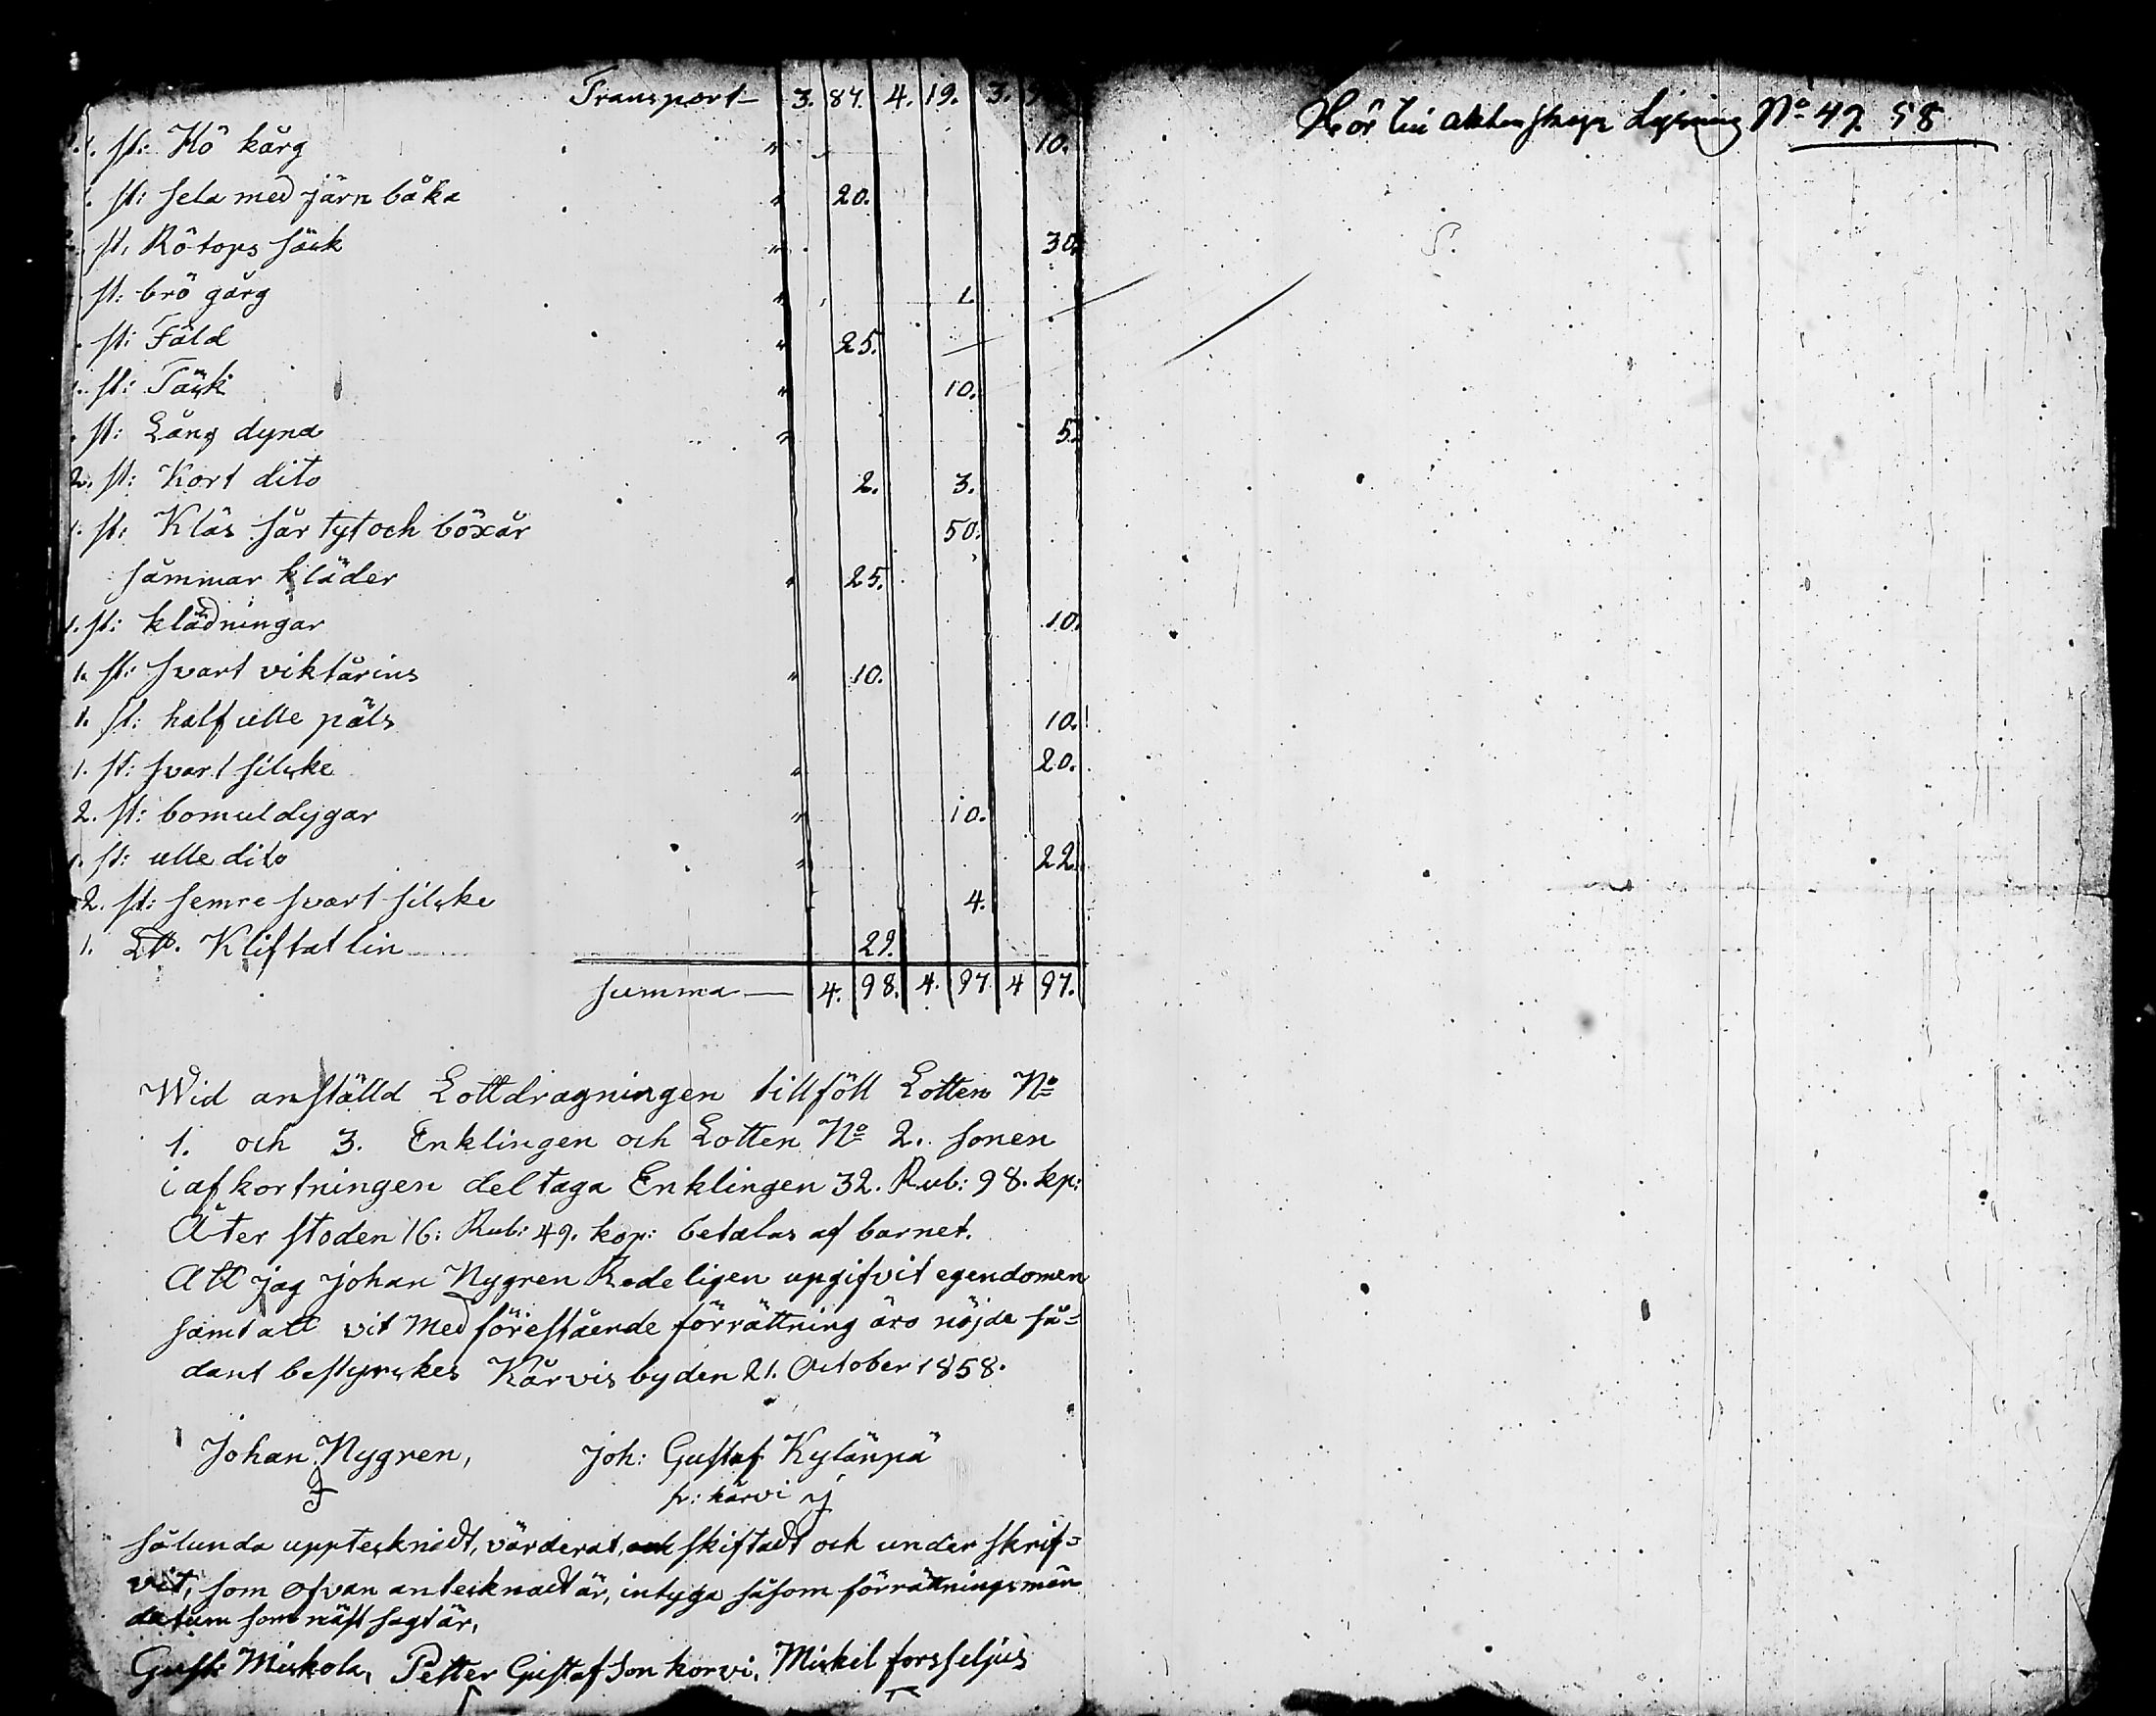 Transport — 3. 87. 4. 19. 3.
1. st: Hö kårg " 10.
st: sela med järn båka " 20.
st, Rötops säck " 30.
st: brö gårg " 1.
st: Fäld " 25.
1. st: Täck " 10.
st: Lång dyna " 5.
2. st: Kort dito 2. 3.
1. st: Kläs sär tyt och böxår 50.
såmmar kläder " 25.
1. st: klädningar 10.
1. st: svart viktårins " 10.
1. st: half ulle päls 10.
1. st: svart silcke " 20.
2. st: bomul dygar " 10.
1. st: ulle dito " 22.
2. st: semre svart silcke 4.
1. L℔. Kliftat lin 29.
summa — 4. 98. 4. 97. 4 97.
Wid anställd Lottdragningen tillföll Lotten No
1. och 3. Enklingen och Lotten No 2. sonen
i afkortningen deltaga Enklingen 32. Rub: 98. kp:
Åter stoden 16: Rub: 49. kop: betalas af barnet.
Att jag Johan Nygren Redeligen upgifvit egendomen
samt att vit Med förestående förrättning äro nöjde så=
dant bestyrckes Kårvis by den 21. October 1858.
Johan Nygren, Joh: Gustaf Kylänpä
p: kårvi
sålunda uppteknadt, värderat, och skiftadt och under skrif=
vit, som ofvan antecknadt är, intyga såsom förrättningsmän
datum som näst sagt är,
Gust: Mickola, Petter Gustafson korvi, Mickel forsseljus
Hör till aktenskaps Lysning No 47. 58